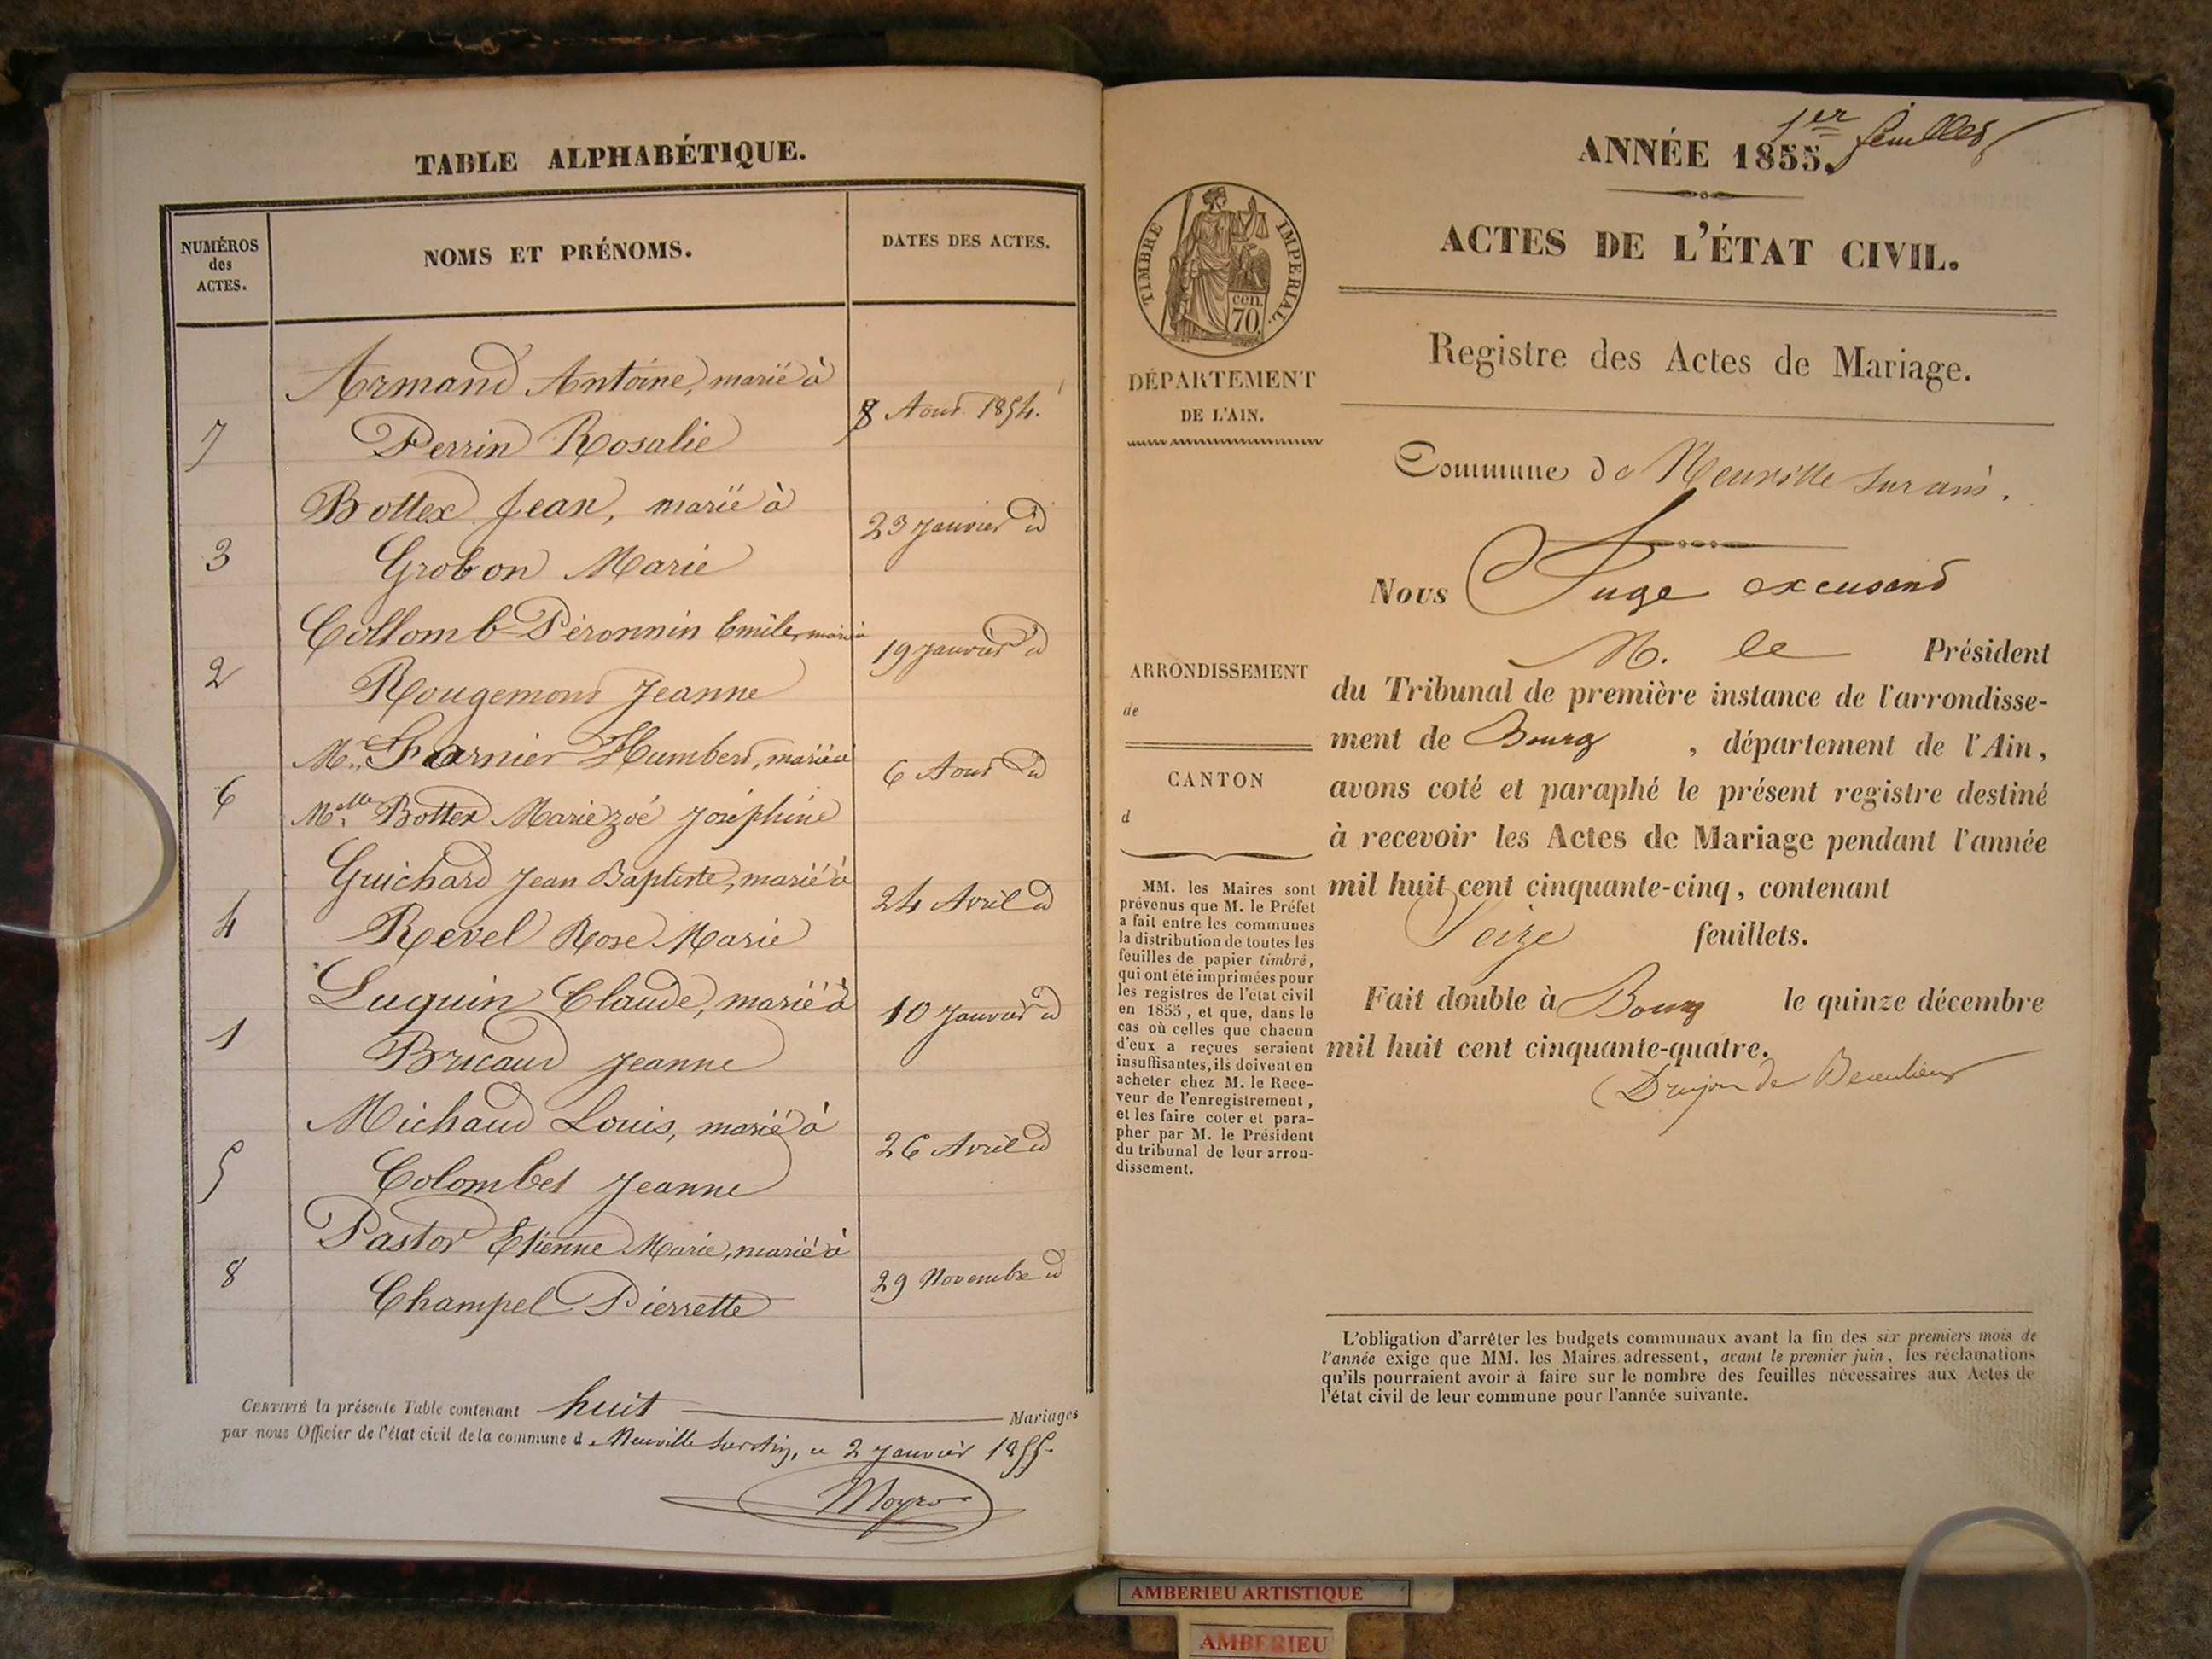 TABLE ALPHABÉTIQUE.
NUMÉROS
des
ACTES.
NOMS ET PRÉNOMS.
DATES DES ACTES.
Armand Antoine, marié à
7 Perrin Rosalie 8 Aout 1854.
Bottex Jean, marié à
3 Grobon Marie 23 Janvier id
Collomb-Péronnin Emile, marié à
2 Rougemont Jeanne 19 Janvier id
Mr. Garnier Humbert, marié à
6 Melle Bottex Marie zoé Joséphine 6 Aout id
Guichard Jean Baptiste, marié à
4 Revel Rose Marie 24 Avril id
Luquin Claude, marié à
1 Bricaud Jeanne 10 Janvier id
Michaud Louis, marié à
5 Colombet Jeanne 26 Avril id
Pastor Etienne Marie, marié à
8 Champel Pierrette 29 Novembre id
CERTIFIÉ la présente Table contenant huit Mariages
par nous Officier de l'état civil de la commune d. Neuville sur Ain, ce 2 Janvier 1855.
1er feuillet
ANNÉE 1855.
ACTES DE L'ÉTAT CIVIL.
TIMBRE IMPERIAL.
cen.
70
DÉPARTEMENT
DE L'AIN.
Registre des Actes de Mariage.
Commune de Neuville sur ain.
Nous Juge excusant
M. le Président
du Tribunal de première instance de l'arrondisse-
ment de Bourg , département de l'Ain,
avons coté et paraphé le présent registre destiné
à recevoir les Actes de Mariage pendant l'année
mil huit cent cinquante-cinq, contenant
Seize feuillets.
Fait double à Bourg le quinze décembre
mil huit cent cinquante-quatre.
Drujon de Beaulieu
ARRONDISSEMENT
de
CANTON
d
MM. les Maires sont
prévenus que M. le Préfet
a fait entre les communes
la distribution de toutes les
feuilles de papier timbré,
qui ont été imprimées pour
les registres de l'état civil
en 1855, et que, dans le
cas où celles que chacun
d'eux a reçues seraient
insuffisantes, ils doivent en
acheter chez M. le Rece-
veur de l'enregistrement,
et les faire coter et para-
pher par M. le Président
du tribunal de leur arron-
dissement.
L'obligation d'arrêter les budgets communaux avant la fin des six premiers mois de
l'année exige que MM. les Maires adressent, avant le premier juin, les réclamations
qu'ils pourraient avoir à faire sur le nombre des feuilles nécessaires aux Actes de
l'état civil de leur commune pour l'année suivante.
AMBERIEU ARTISTIQUE
AMBERIEU